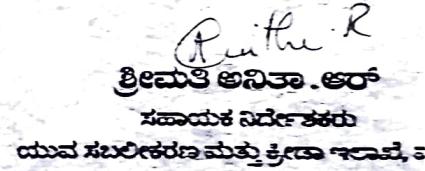 Anitha R
ಶ್ರೀಮತಿ ಅನಿತಾ.ಆರ್
ಸಹಾಯಕ ನಿರ್ದೇಶಕರು
ಯುವ ಸಬಲೀಕರಣ ಮತ್ತು ಕ್ರೀಡಾ ಇಲಾಖೆ,